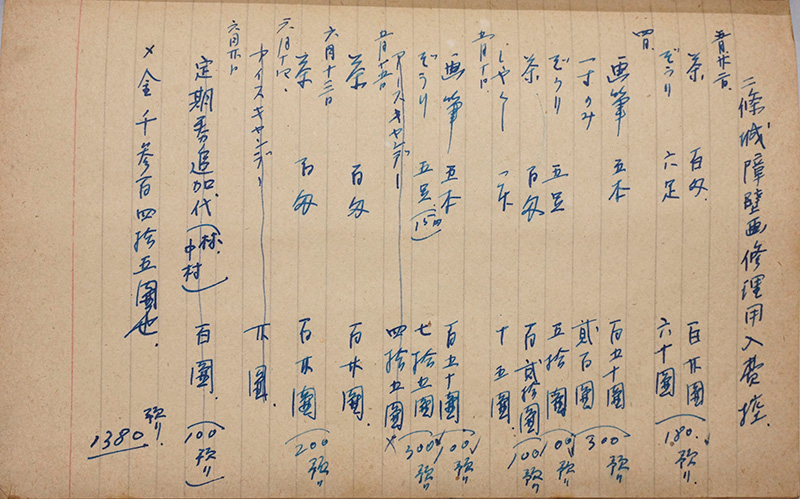 二條城障壁画修理用入費控
五月廿二日
茶 百匁 百廿圓
ぞうり 六足 六十圓 (180. 預リ.
四日
画筆 五本 百五十圓
一寸のみ 貳百圓 (300
ぞうり 五足 五拾圓 (100 預リ
茶 百匁 百貳拾圓 (100 預リ
しやくし 一本 十五圓
五月十日
画筆 五本 百五十圓 (100. 預リ
ぞうり 五足 (15円) 七拾五圓 (300 預リ
アイスキャンデー 四拾五圓 ×
五月廿五日
茶 百匁 百廿圓
六月十三日
茶 百匁 百廿圓 (200 預リ
六月十四、
アイスキャンデー 廿圓.
六月廿八日
定期券追加代 (林、中村) 百圓. (100 預リ)
× 金千参百四拾五圓也.
預リ. 1380